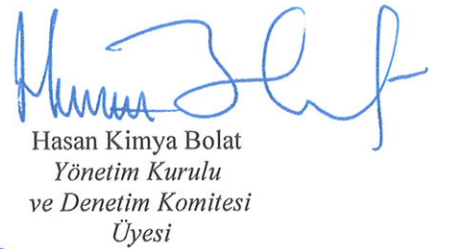 Hasan Kimya Bolat
Yönetim Kurulu
ve Denetim Komitesi
Üyesi